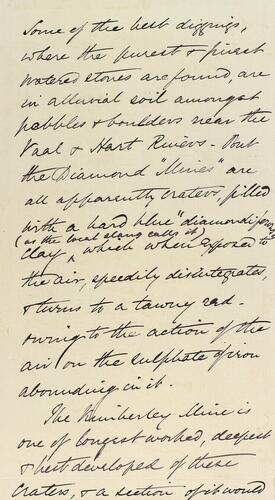 Some of the best diggings,
where the purest & finest
watered stones are found, are
in alluvial soil amongst
pebbles & boulders near the
Vaal & Hart Rivers - But
the Diamond "Mines" are
all apparently craters, filled
with a hard blue "diamondiferous
(as the local slang calls it)
Clay, which when exposed to
the air, speedily disintegrates,
& turns to a tawny red -
owing to the action of the
air on the sulphate of iron
abounding in it.
The Kimberley Mine is
one of longest worked, deepest
& best developed of these
Craters, & a section of it would